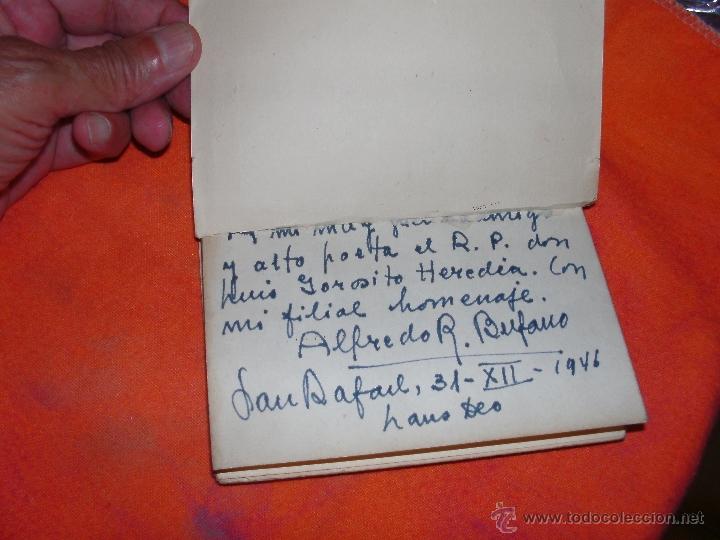 A mi muy amigo
y alto poeta el R. P. don
Luis Gorosito Heredia. Con
mi filial homenaje.
Alfredo R. Bufano
San Rafael, 31-XII-1946
Laus Deo
© www.todocoleccion.net